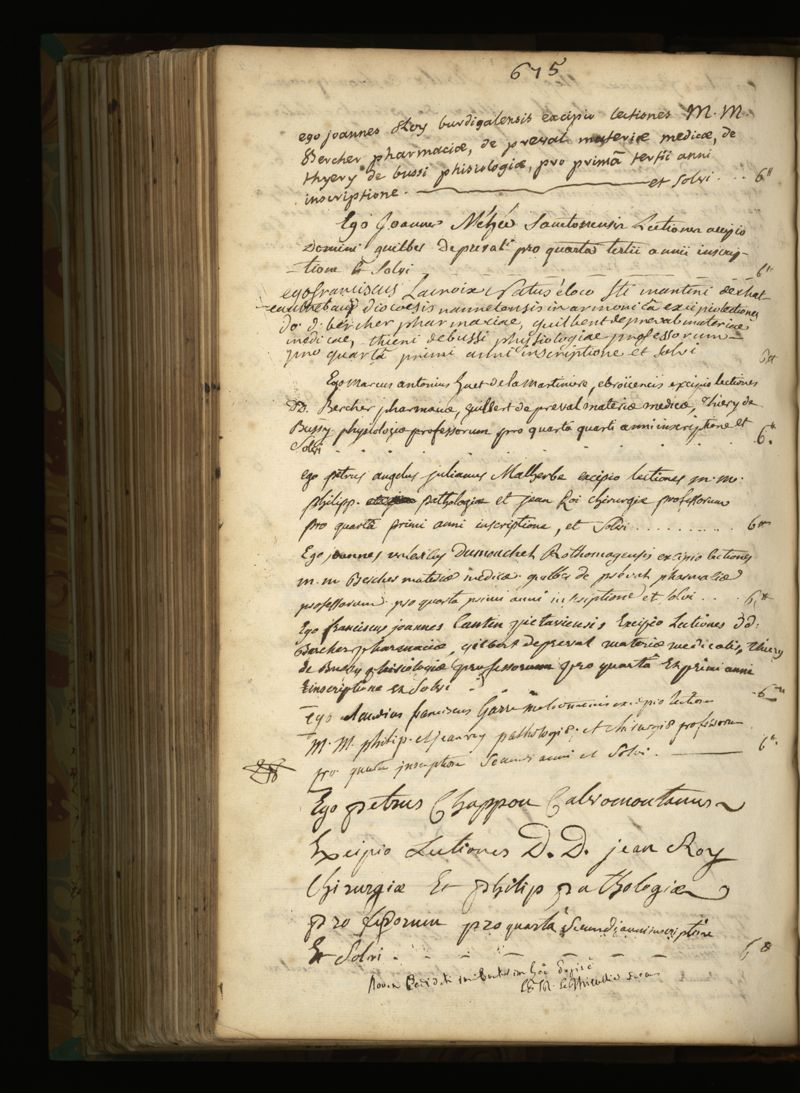 675
ego joannes Roy burdigalensis excipio lectiones M. M.
Bercher pharmaciæ, de preval materiæ medicæ, de
thyery de bussi phisiologiæ, pro primâ tertii anni
inscriptione. et solvi ... 6"
Ego Joannes Méhée Santonensis Lectiones accipio
Domini guilbes depreval pro quarta tertii annii inscrip-
-tione et Solvi 6"
ego franciscus Lacroix Natus éloco Sti martini de chat-
diocoesis nannetensis in armorica excipio lectiones
do d: bercher pharmaxiae, quilbent depreval materiae
medicae, thieni debussi physiologiae professorum-
pro quartâ primi anni inscriptione et solvi 6"
Ego Marcus antonius huet de la Martiniere, ebroïcencis excipio lectiones
DD. Bercher pharmaciæ, guilbert de preval materiæ medicæ, Thiery de
Bussy physiologiæ professorum pro quarta quarti anni inscriptione et
Solvi 6"
ego petrus angelus julianus Malherbe excipio lectiones m. m.
philipp. pathologiæ et jean Roi chirurgiæ professorum
pro quartâ primi anni inscriptione, et Solvi .......... 6"
Ego joannes Dumouchet Rothomagensis excipio lectiones
m. m Bercher materiæ medicæ guilbes de préval pharmaciæ
professorum pro quarta primi anni inscriptione et solvi ... 6"
Ego franciscus joannes Cantin pictaviensis Excipio Lectiones dd:
Bercher pharmaciæ, gilbert depreval materiæ medicalis, thiery
de Bussy phisiologiæ professorum pro quartâ Ex primi anni
Einscriptione et Solvi 6"
Ego claudius franciscus excipio lectiones
M. M philip. et jean roy pathologiæ. et chirurgiæ professorum
pro quarta inscriptione Secundi anni et Solvi. 6"
Ego petrus Chappon Calvomontanus
Excipio Lectiones D. D. jean Roy
Chirurgiæ Et philip pathologiæ
professorum pro quartâ Secundi anni inscriptione
Et Solvi 6"